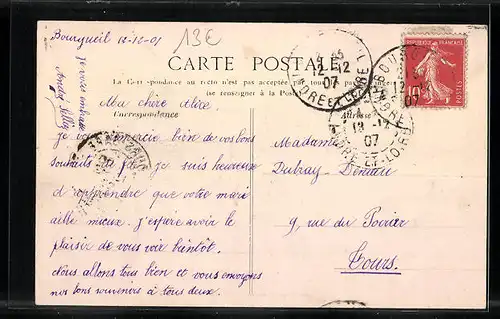 Bourgueil 12-12-07
13€
CARTE POSTALE
La Correspondance au recto n'est pas acceptée par tous
se renseigner à la Poste
Correspondance
Adresse
Ma chère Alice,
Je remercie bien de vos bons
souhaits. Je suis heureuse
d'apprendre que votre mari
aille mieux. J'espère avoir le
plaisir de vous voir bientôt.
Nous allons tous bien et vous envoyons
nos bons souvenirs à tous deux.
Je vous embrasse
Madame
Dubray-Deniau
9, rue du Poirier
Tours.
12-12
07
INDRE ET LOIRE
12-12
07
10
POSTES